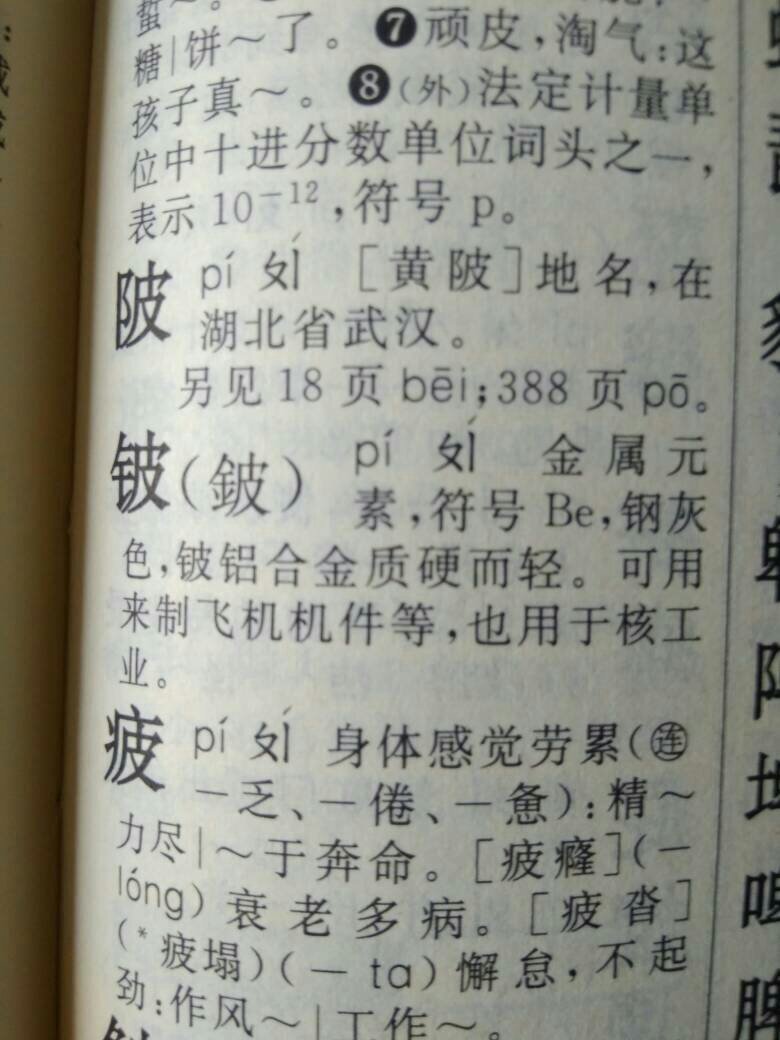 蜇～。
糖|饼～了。❼顽皮,淘气:这
孩子真～。❽(外)法定计量单
位中十进分数单位词头之一,
表示10⁻¹²,符号p。
陂 pí ㄆㄧˊ [黄陂]地名,在
湖北省武汉。
另见18页bēi;388页pō。
铍(鈹) pí ㄆㄧˊ 金属元
素,符号Be,钢灰
色,铍铝合金质硬而轻。可用
来制飞机机件等,也用于核工
业。
疲 pí ㄆㄧˊ 身体感觉劳累(㊣
一乏、一倦、一惫):精～
力尽|～于奔命。[疲癃](一
lóng)衰老多病。[疲沓]
(*疲塌)(一ta)懈怠,不起
劲:作风～|工作～。